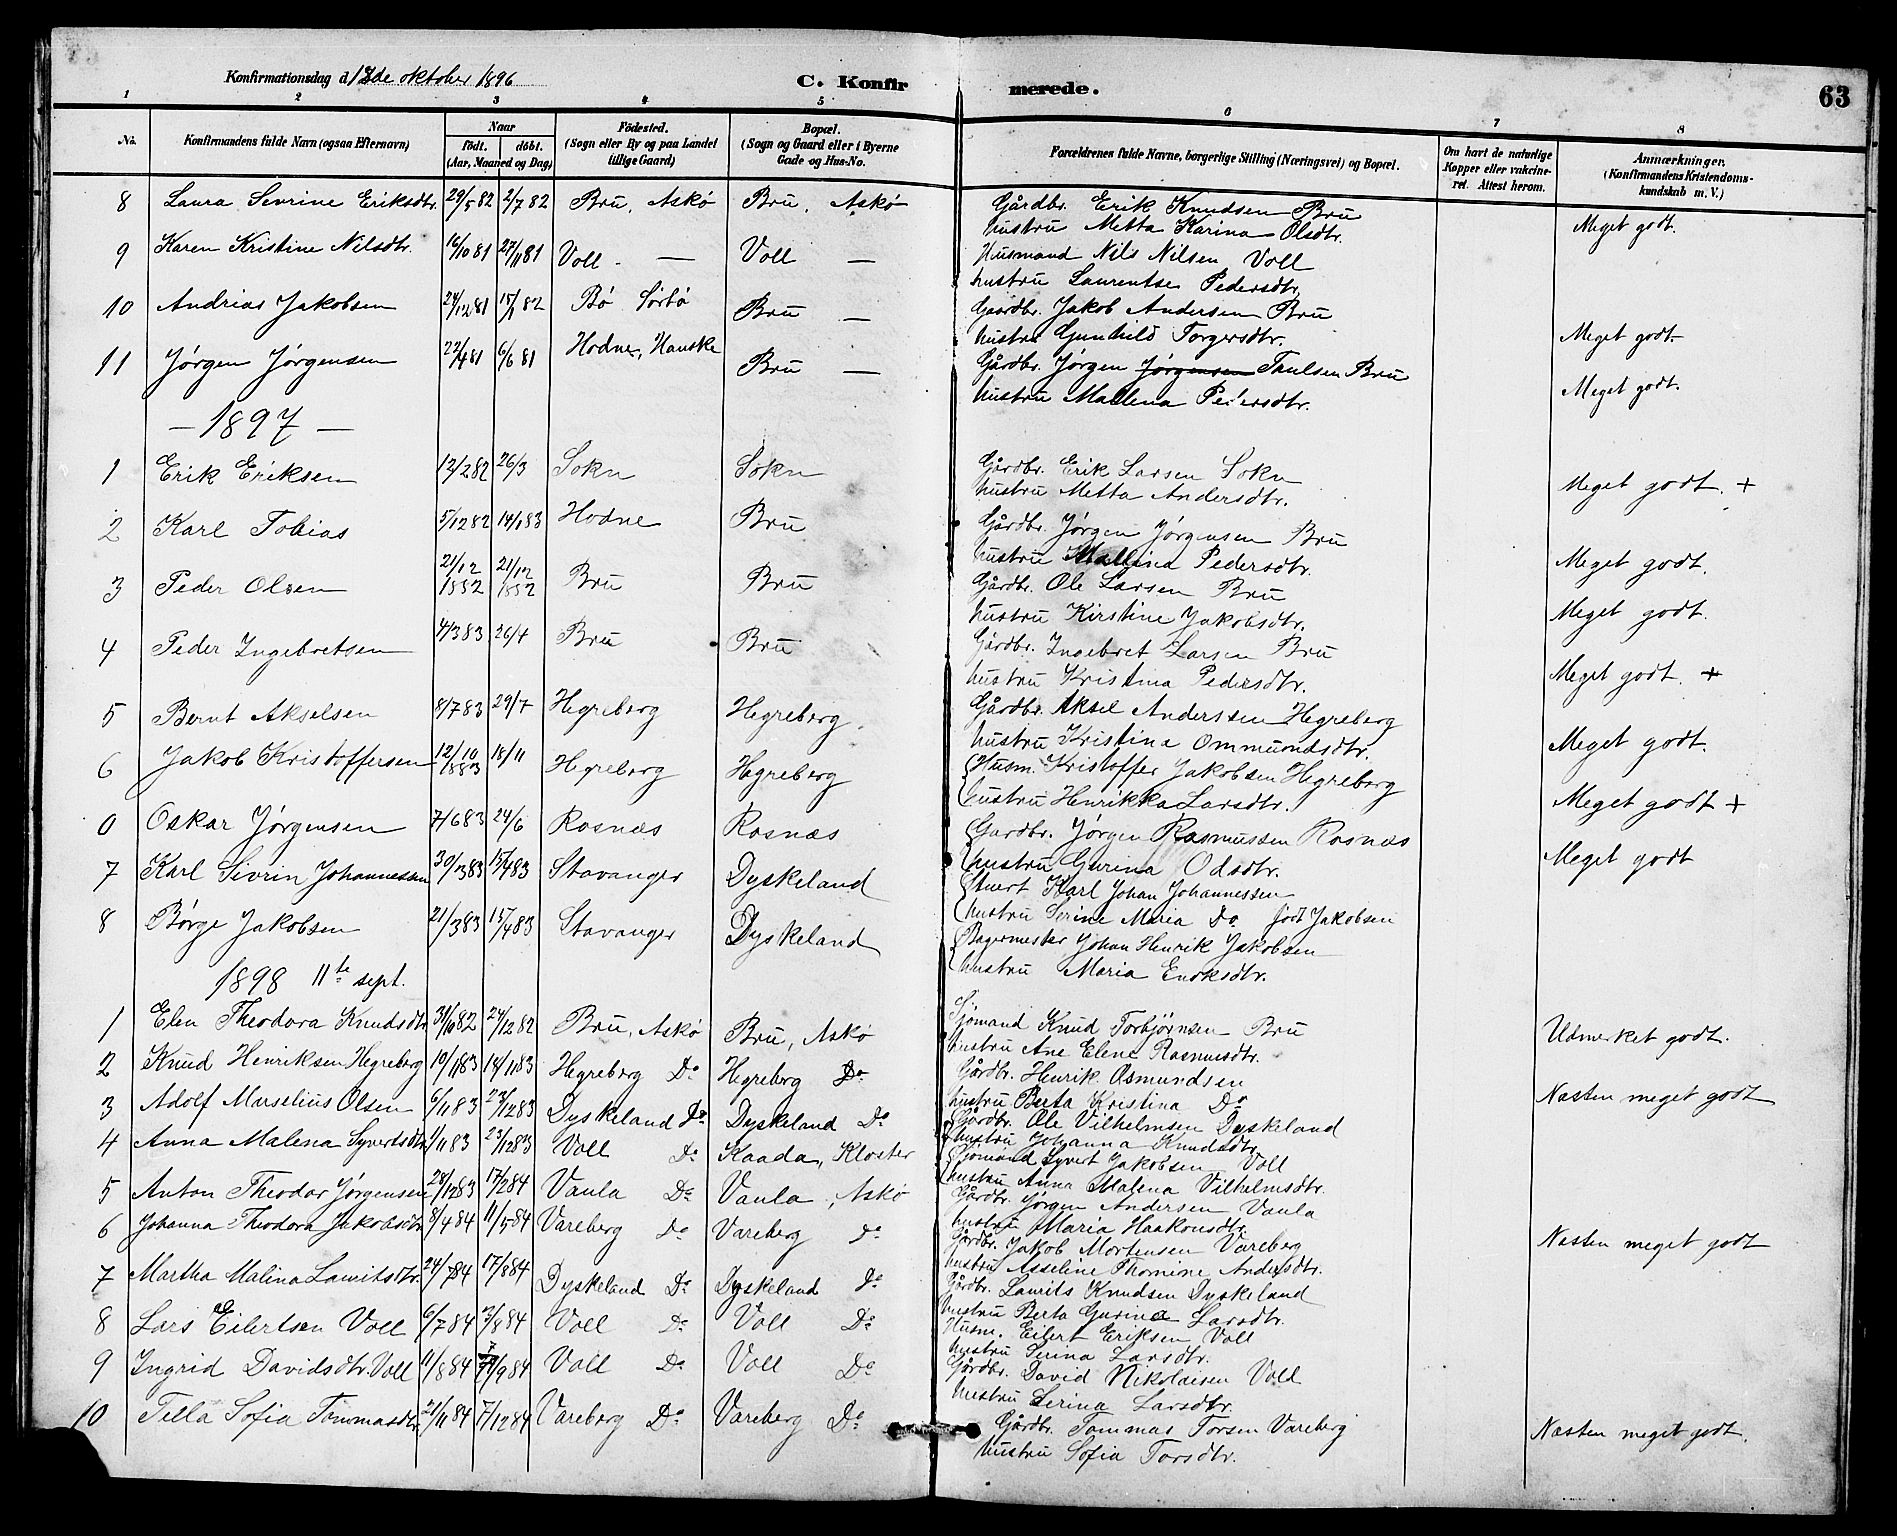 Konfirmationsdag d. 12de oktober 1896 C. Konfirmerede. 63
1 2 3 4 5 6 7 8
No. Konfirmandens fulde Navn (ogsaa Efternavn) Naar födt. döbt. (Aar, Maaned og Dag) Födested. (Sogn eller By og paa Landet tillige Gaard) Bopæl. (Sogn og Gaard eller i Byerne Gade og Hus-No. Forældrenes fulde Navne, borgerlige Stilling (Næringsvei) og Bopæl. Om havt de naturlige Kopper eller vakcineret. Attest herom. Anmærkninger. (Konfirmandens Kristendomskundskab m. V.)
8 Laura Sevrine Eriksdtr. 29/5 82 2/7 82 Bru, Askø Bru, Askø Gårdbr. Erik Knudsen Bru
hustru Metta Karina Olsdtr. Meget godt.
9 Karen Kristine Nilsdtr. 16/10 81 27/11 81 Voll — Voll — Husmand Nils Nilsen Voll
hustru Laurentse Pedersdtr.
10 Andrias Jakobsen 24/12 81 15/1 82 Bø Sörbö Bru — Gaardbr. Jakob Andersen Bru
hustru Gunhild Torgersdtr. Meget godt.
11 Jørgen Jørgensen 22/4 81 6/6 81 Hodne, Hauske Bru — Gårdbr. Jørgen Jørgensen Thulsen Bru
hustru Mallena Pedersdtr. Meget godt.
— 1897 —
1 Erik Eriksen 12/2 82 26/3 Sokn Sokn Gårdbr. Erik Larsen Sokn
hustru Metta Andersdtr. Meget godt. +
2 Karl Tobias 5/12 82 14/1 83 Hodne Bru Gårdbr. Jørgen Jørgensen Bru
hustru Mallina Pedersdtr. Meget godt.
3 Peder Olsen 21/12 1882 21/12 1882 Bru Bru Gårdbr. Ole Larsen Bru
hustru Kirstine Jakobsdtr. Meget godt.
4 Peder Ingebretsen 4/3 83 26/4 Bru Bru Gårdbr. Ingebret Larsen Bru
hustru Kristina Pedersdtr. Meget godt. +
5 Bernt Akselsen 8/7 83 29/7 Hegreberg Hegreberg Gårdbr. Aksel Anderssen Hegreberg
hustru Kristina Ommundsdtr. Meget godt.
6 Jakob Kristoffersen 12/10 1883 18/11 Hegreberg Hegreberg Husm. Kristoffer Jakobsen Hegreberg
hustru Henrikka Larsdtr. Meget godt +
0 Oskar Jørgensen 7/6 83 24/6 Rosnæs Rosnæs Gardbr. Jørgen Rasmussen Rosnæs
hustru Gurina Odsdtr. Meget godt
7 Karl Sivrin Johannessen 30/3 83 15/4 83 Stavanger Dyskeland Karl Johan Johannessen
hustru Serine Maria Do født Jakobsen
8 Børge Jakobsen 21/3 83 15/4 83 Stavanger Dyskeland Bagermester Johan Henrik Jakobsen
hustru Maria Enoksdtr.
1898 11te sept.
1 Elen Theodora Knudsdtr 31/10 82 24/12 82 Bru, Askø Bru, Askø Sjömand Knud Torbjörnsen Bru
hustru Ane Elene Rasmusdtr. Udmerket godt.
2 Knud Henriksen Hegreberg 10/1 83 14/1 83 Hegreberg Do Hegreberg Do Gårdbr. Henrik Osmundsen
hustru Berta Kristina Do
3 Adolf Marselius Olsen 6/11 83 23/12 83 Dyskeland Do Dyskeland Do Gårdbr. Ole Vilhelmsen Dyskeland
hustru Johanna Knudsdtr Næsten meget godt
4 Anna Malena Syvertsdtr 1/11 83 23/12 83 Voll Do Kaada, Kloster Sjömand Syvert Jakobsen Voll
hustru Anna Malena Vilhelmsdtr.
5 Anton Theodor Jørgensen 28/12 83 17/2 84 Vaula Do Vaula, Askø Gårdbr. Jørgen Andersen Vaula
hustru Maria Haakonsdtr.
6 Johanna Theodora Jakobsdtr 8/4 84 11/5 84 Vareberg Do Vareberg do Gårdbr. Jakob Mortensen Vareberg
hustru Asseline Thomine Andersdtr. Næsten meget godt
7 Martha Malina Lauritsdtr. 24/7 84 17/8 84 Dyskeland Do Dyskeland do Gårdbr. Laurits Knudsen Dyskeland
hustru Berta Gurina Larsdtr.
8 Lars Eilertsen Voll 6/7 84 3/8 84 Voll Do Voll Do Husm. Eilert Eriksen Voll
hustru Serina Larsdtr.
9 Ingrid Davidsdtr. Voll 11/8 84 7/9 84 Voll Do Voll Do Gårdbr. David Nikolaisen Vold
hustru Serina Larsdtr.
10 Tella Sofia Tommasdtr 21/11 84 7/12 84 Vareberg Do Vareberg Do Gårdbr. Tommas Torsen Vareberg
hustru Sofia Torsdtr. Næsten meget godt.